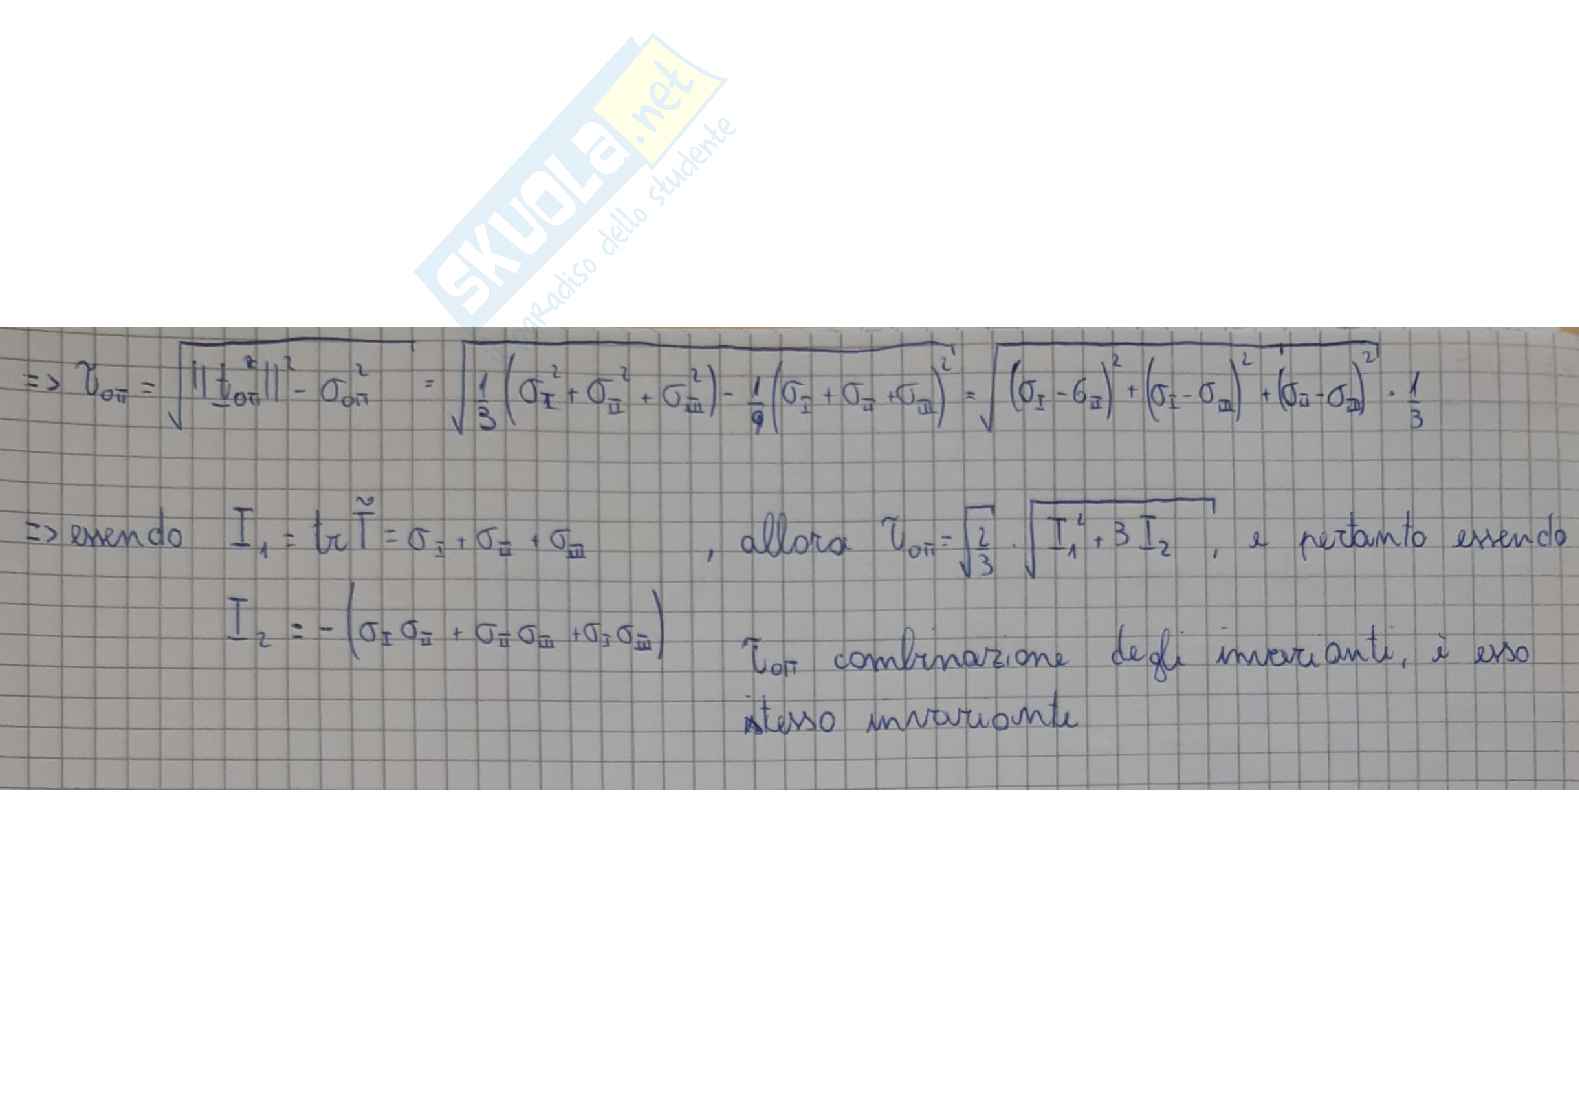 SKUOLA.net
paradiso dello studente
=> τoπ = √(||t̲oπ||² - σoπ²) = √(1/3 (σI² + σII² + σIII²) - 1/9 (σI + σII + σIII)²) = √((σI - σII)² + (σI - σIII)² + (σII - σIII)²) · 1/3
=> essendo I₁ = tr T̃ = σI + σII + σIII , allora τoπ = √2/3 · √(I₁² + 3 I₂) , e pertanto essendo
I₂ = -(σI σII + σII σIII + σI σIII)
τoπ combinazione degli invarianti, è esso
stesso invariante